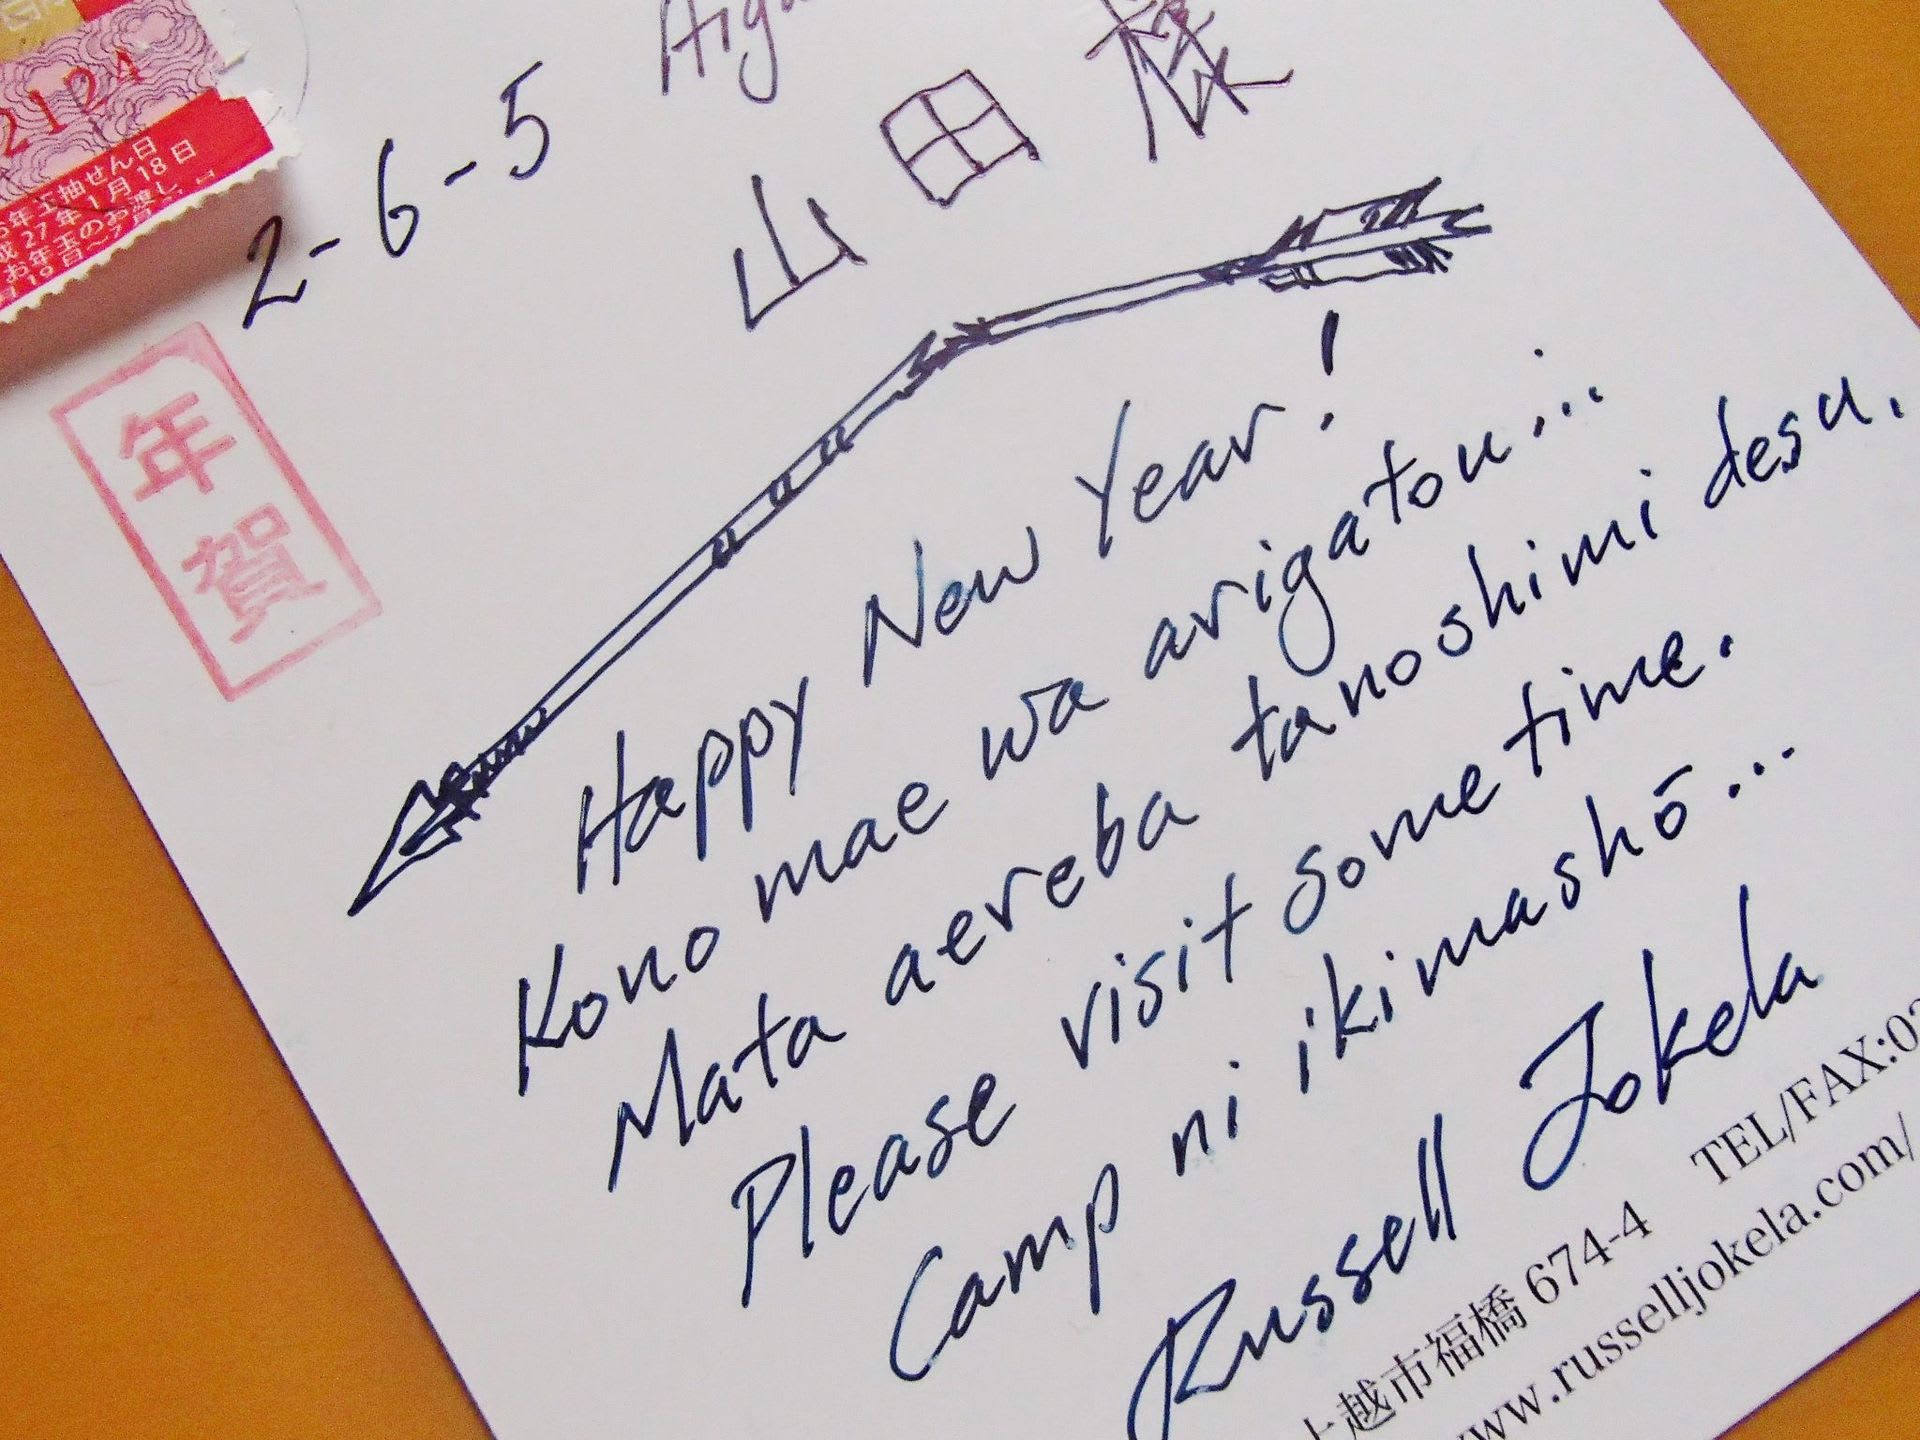 2124
年玉抽せん日
27年1月18日
お年玉のお渡し
2-6-5
山田様
年賀
Happy New Year!
Kono mae wa arigatou...
Mata aereba tanoshimi desu.
Please visit sometime.
Camp ni ikimashō...
Russell Jokela
上越市福橋 674-4 TEL/FAX:02
www.russelljokela.com/